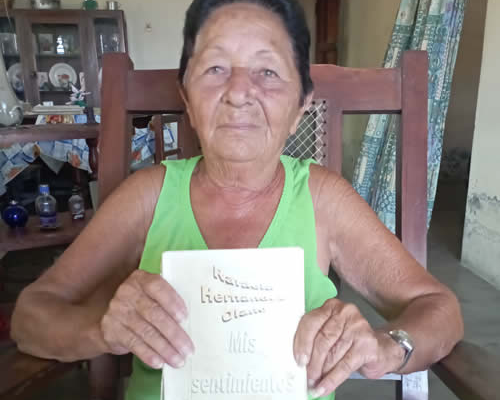 Rafaela
Hernández
Olano
Mis
sentimientos